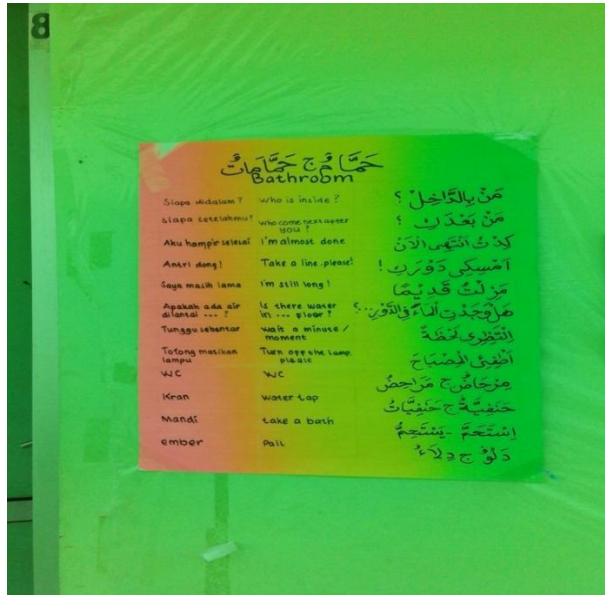 8
حَمَّامٌ ج حَمَّامَاتٌ
Bathroom
Siapa didalam? Who is inside? مَنْ بِالدَّاخِلْ؟
siapa setelahmu? who come next after you? مَنْ بَعْدَكِ؟
Aku hampir selesai I'm almost done كِدْتُ انْتَهِى الْآنَ
Antri dong! Take a line, please! اَمْسِكِى دَوْرَكِ!
Saya masih lama I'm still long! مَزِلْتُ قَدِيْمًا
Apakah ada air dilantai ...? Is there water in ... floor? هَلْ وَجَدْتِ الْمَاءَ فِى الدَّوْرِ...؟
Tunggu sebentar wait a minute / moment اِنْتَظِرِى لَحْظَةً
Tolong matikan lampu Turn off the lamp, please اَطْفِئِى الْمِصْبَاحَ
WC WC مِرْحَاضٌ ج مَرَاحِضُ
Kran water tap حَنَفِيَّةٌ ج حَنَفِيَّاتٌ
Mandi take a bath اِسْتَحَمَّ - يَسْتَحِمُّ
ember Pail دَلْوٌ ج دِلَاءٌ